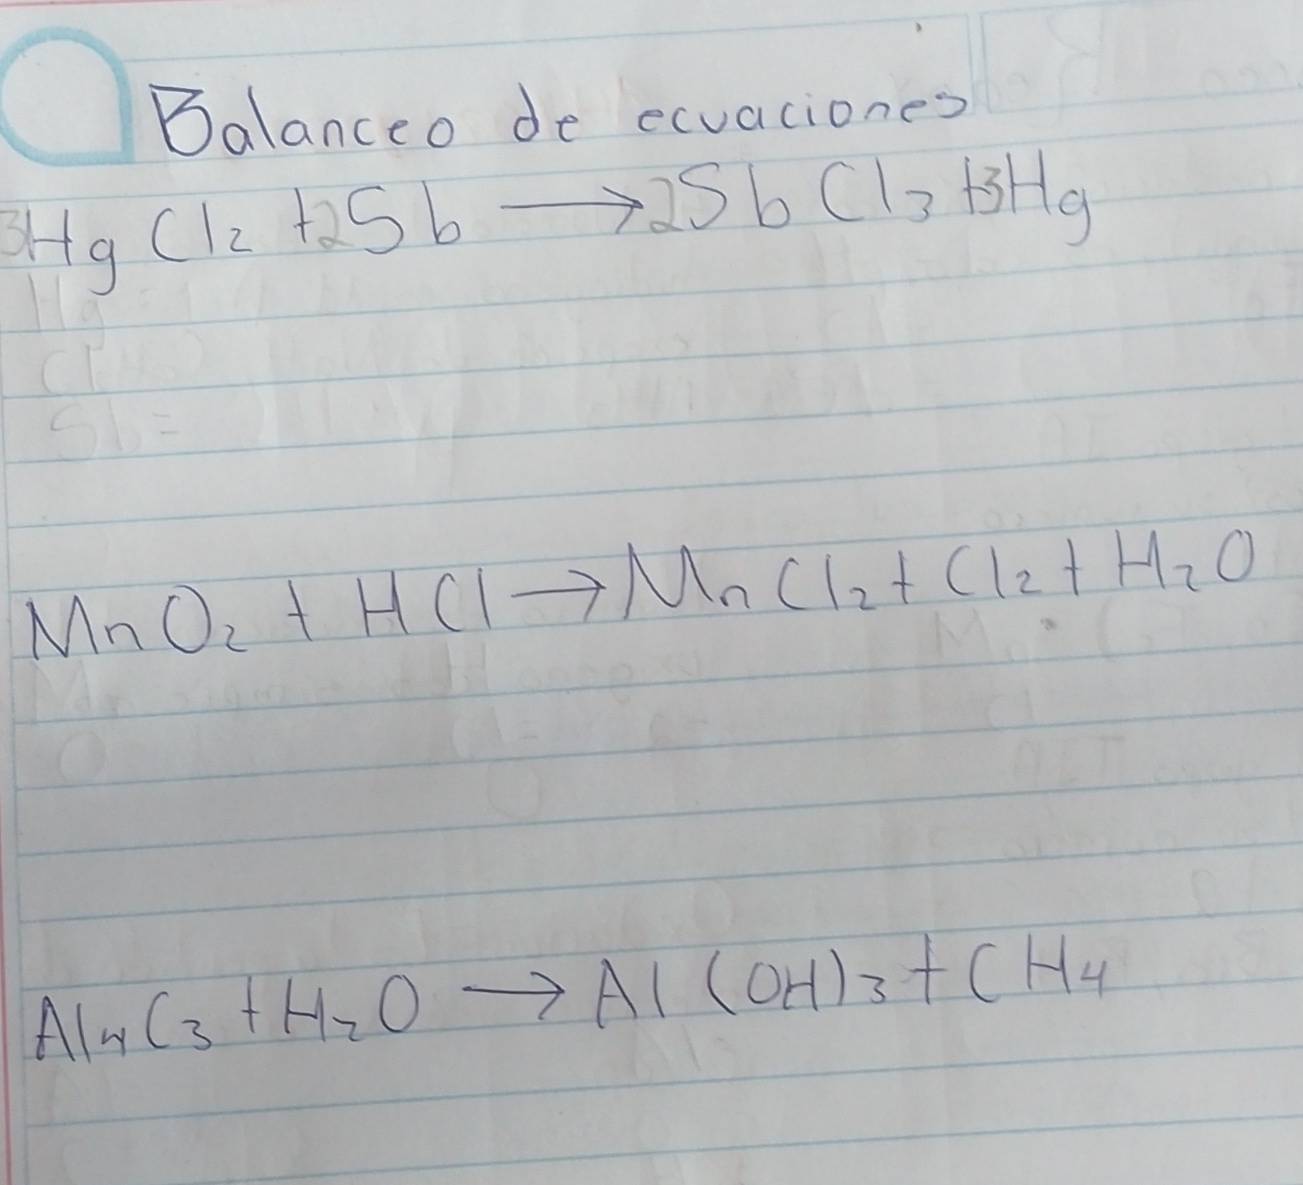 Balanceo de ecuaciones
3HgCl₂ + 2Sb → 2SbCl₃ + 3Hg
Hg
Cl
Sb =
MnO₂ + HCl → MnCl₂ + Cl₂ + H₂O
Al₄C₃ + H₂O → Al(OH)₃ + CH₄